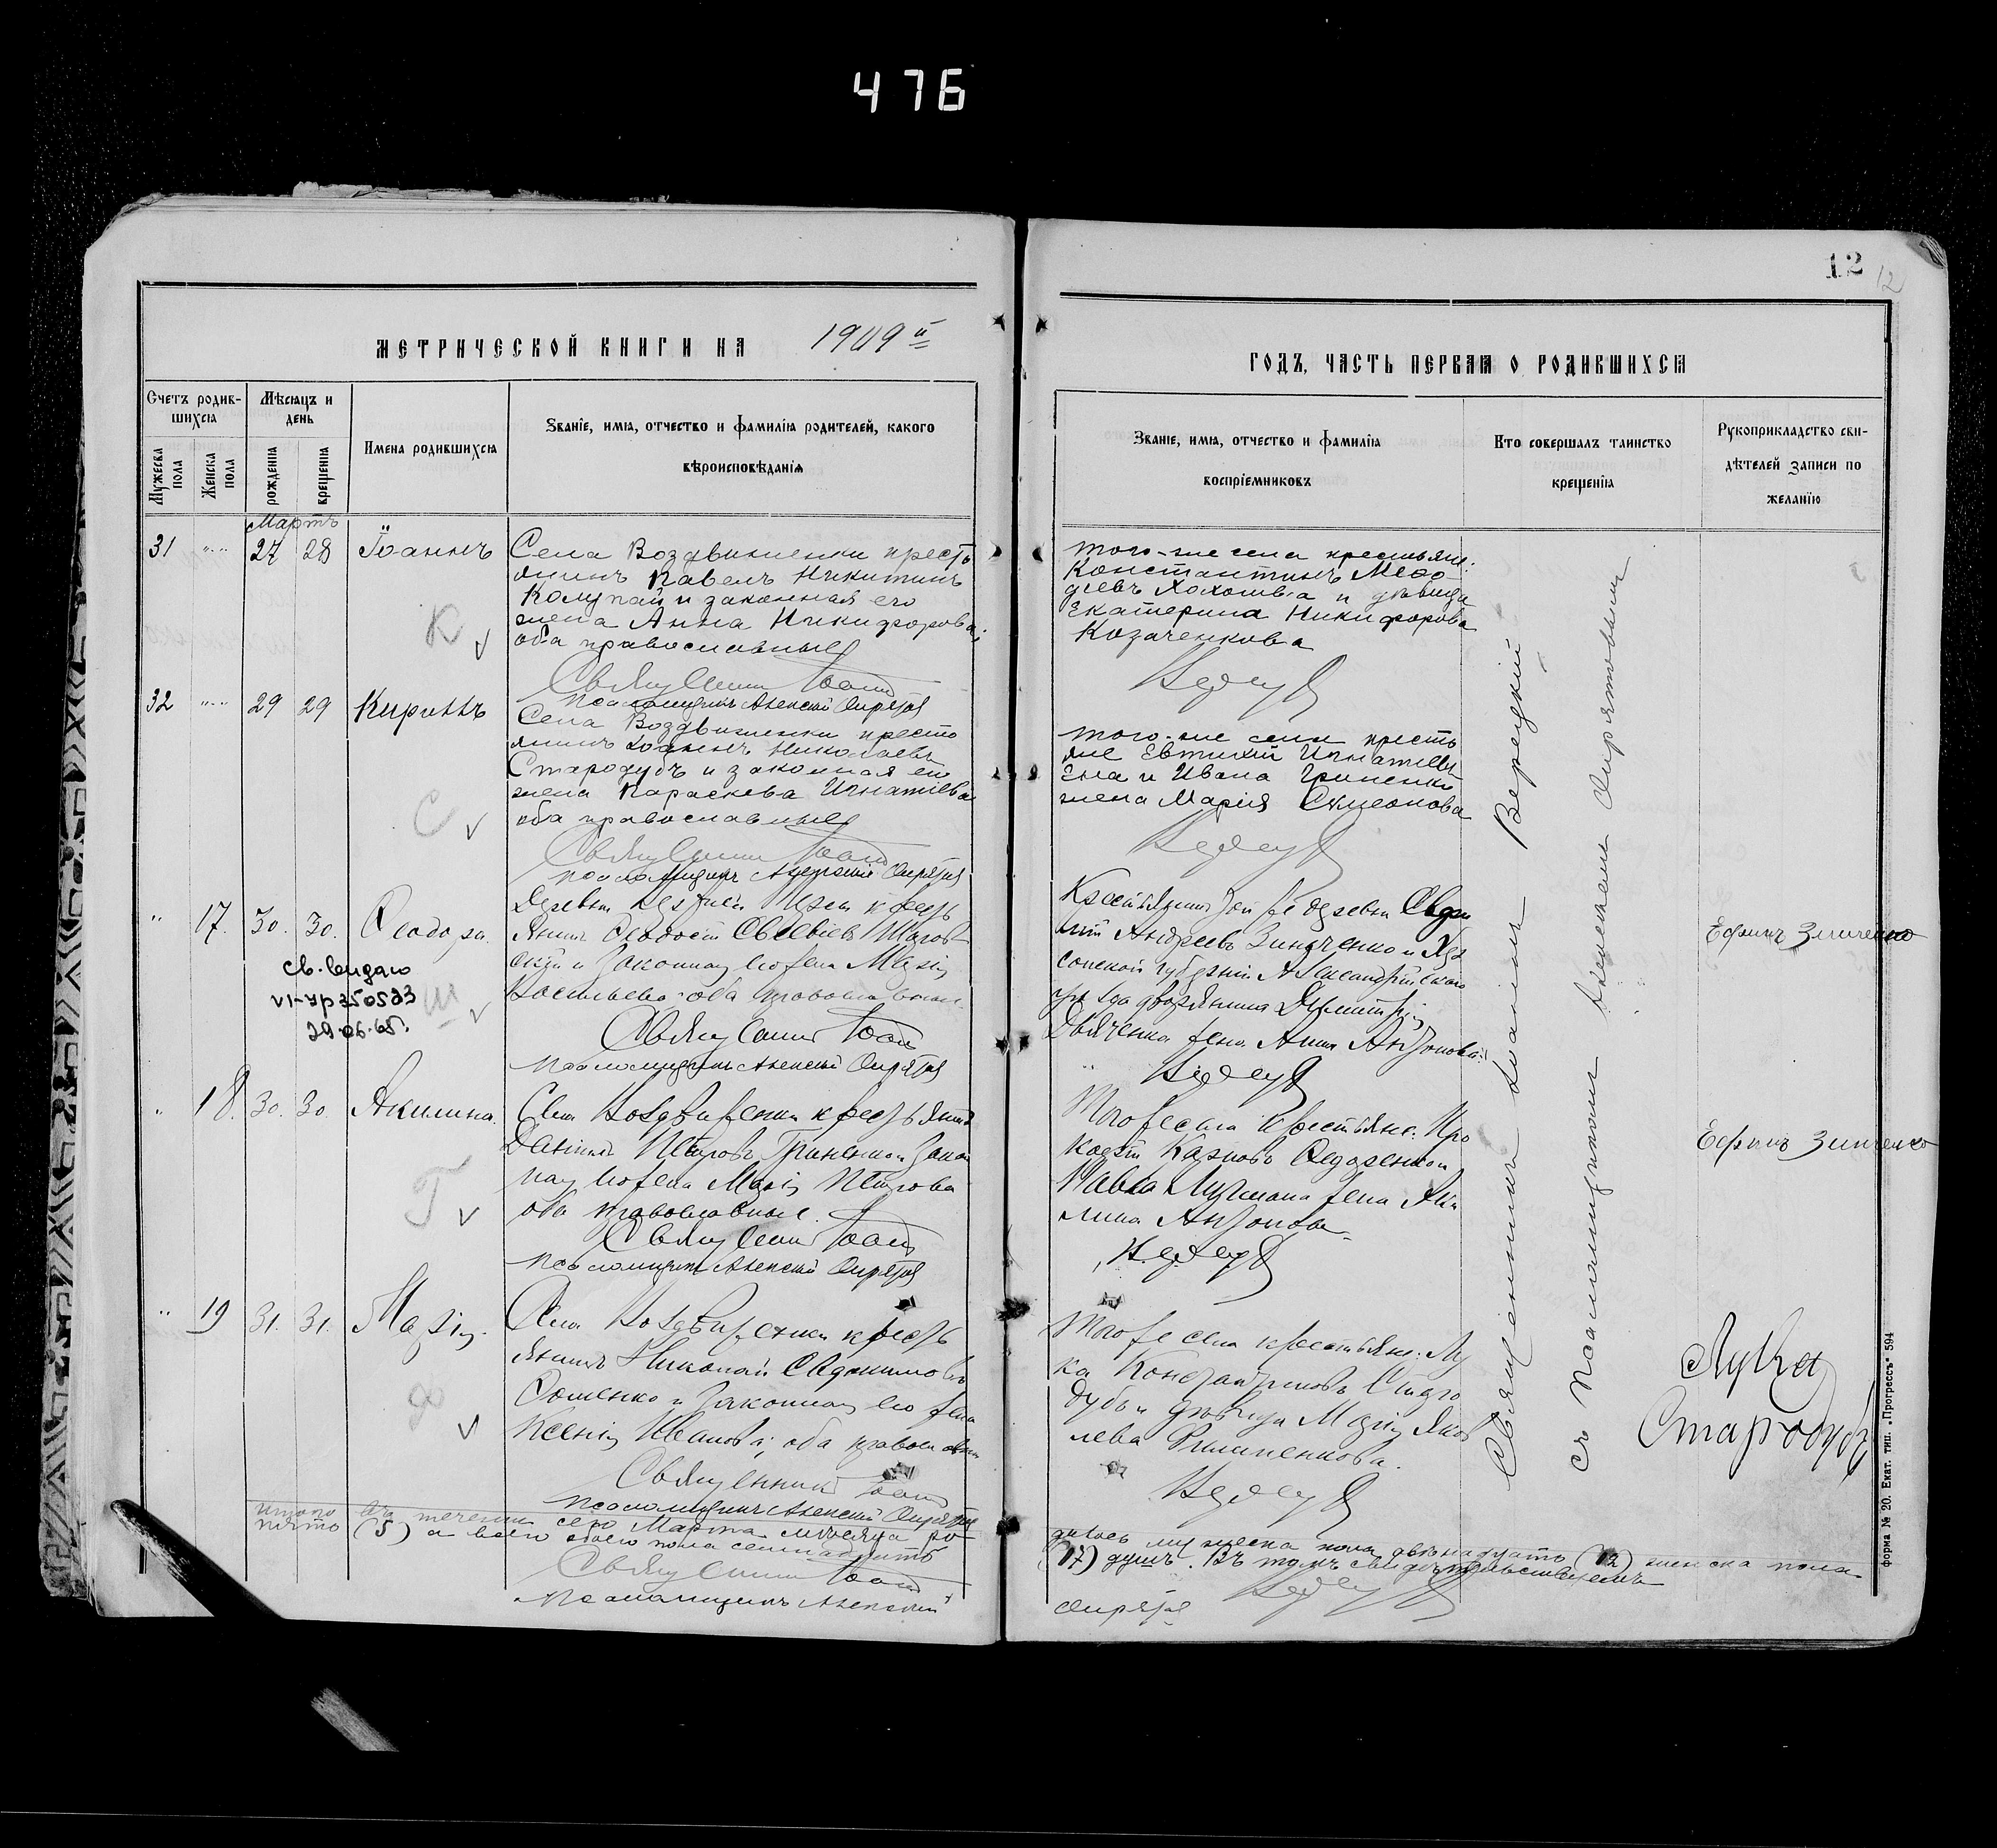 476
12
12
МЕТРИЧЕСКОЙ КНИГИ НА 1909 й
ГОДЪ, ЧАСТЬ ПЕРВАЯ О РОДИВШИХСЯ
Счетъ родив-
шихся
Мужеска пола
Женска пола
Мѣсяцъ и
день
рожденія
крещенія
Имена родившихся
Званіе, имя, отчество и фамилія родителей, какого
вѣроисповѣданія
Званіе, имя, отчество и фамилія
воспріемниковъ
Кто совершалъ таинство
крещенія
Рукоприкладство сви-
дѣтелей записи по
желанію
Мартъ
31 27 28 Іоаннъ
Села Воздвиженки кресть
янинъ Павелъ Никитинъ
Колупай и законная его
жена Анна Никифорова;
оба православные
Священникъ Іоаннъ
Псаломщикъ Алексій
К
того-же села крестьяне:
Константинъ Меѳо-
діевъ и дѣвица
Екатерина Никифорова
Козаченкова
32 29 29 Кириллъ
Села Воздвиженки кресть
янинъ Іоаннъ Николаевъ
Стародубъ и законная его
жена Параскева Игнатіева
оба православные
Священникъ Іоаннъ
Псаломщикъ Алексій
С
того-же села кресть
яне Евтихій Игнатіевъ
и Ивана Гриненко
жена Марія Симеонова
17. 30. 30. Ѳеодора.
св. видано
VI-УР 350523
29.06.65г.
Ш
Деревни крестъ
янинъ Ѳеодосій Евсевіевъ
и законная его жена Марія
Васильева оба православные
Священникъ Іоаннъ
Псаломщикъ Алексій
Крестьянинъ той же деревни
Андреевъ Зинченко и Хер
сонской губерніи Александрійскаго
уѣзда дворянина Димитрія
Дьяченка жена Анна Антонова
Ефимъ Зинченко
18. 30. 30. Акилина.
Села Воздвиженки крестьянинъ
Даніилъ Петровъ Гриненко и закон
ная его жена Марія Петрова
оба православные.
Священникъ Іоаннъ
Псаломщикъ Алексій
Г
Того же села крестьяне: Про
кофій Карповъ Ѳедоренко и
Павла жена Аки
лина Антонова
Ефимъ Зинченко
19 31. 31. Марія.
Села Воздвиженки кресть
янинъ Николай Евдокимовъ
Ѳоменко и законная его жена
Ксенія Иванова; оба православн
Священникъ Іоаннъ
Псаломщикъ Алексій
Ф
Того же села крестьяне: Лу
ка Кондратиковъ Старо
дубъ и дѣвица Марія Яков
лева Филипенкова.
Лука
Стародубъ
Священникъ Іоаннъ Верецкій
съ Псаломщикомъ Алексіемъ
Итого въ теченіи сего Марта мѣсяца ро-
дилось мужеска пола двѣнадцать (12) женска пола
пять (5) а всего обоего пола семнадцать
(17) душъ. Въ томъ свидѣтельствуемъ
Священникъ Іоаннъ
Псаломщикъ Алексій
форма № 20. Екат. тип. „Прогрессъ“ 594